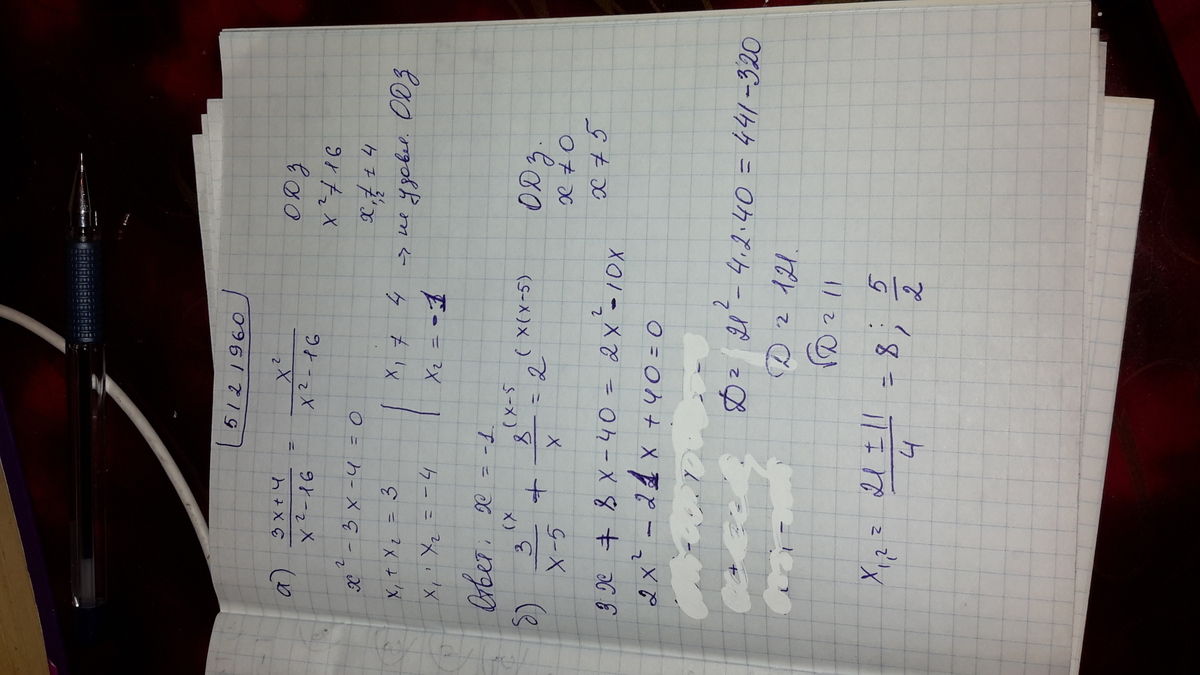 5121960
а) 3x+4 / x²-16 = x² / x²-16
ОDЗ
x² ≠ 16
x² - 3x - 4 = 0
x₁,₂ ≠ ± 4
x₁ + x₂ = 3 | x₁ ≠ 4 → не удовл. ОDЗ
x₁ · x₂ = -4 | x₂ = -1
Ответ: x = -1
б) 3 (x / x-5 + 8 (x-5 / x = 2 (x(x-5)
ОDЗ.
x ≠ 0
x ≠ 5
3x + 8x - 40 = 2x² - 10x
2x² - 21x + 40 = 0
D = 21² - 4·2·40 = 441 - 320
D = 121.
√D = 11
x₁,₂ = 21 ± 11 / 4 = 8; 5/2